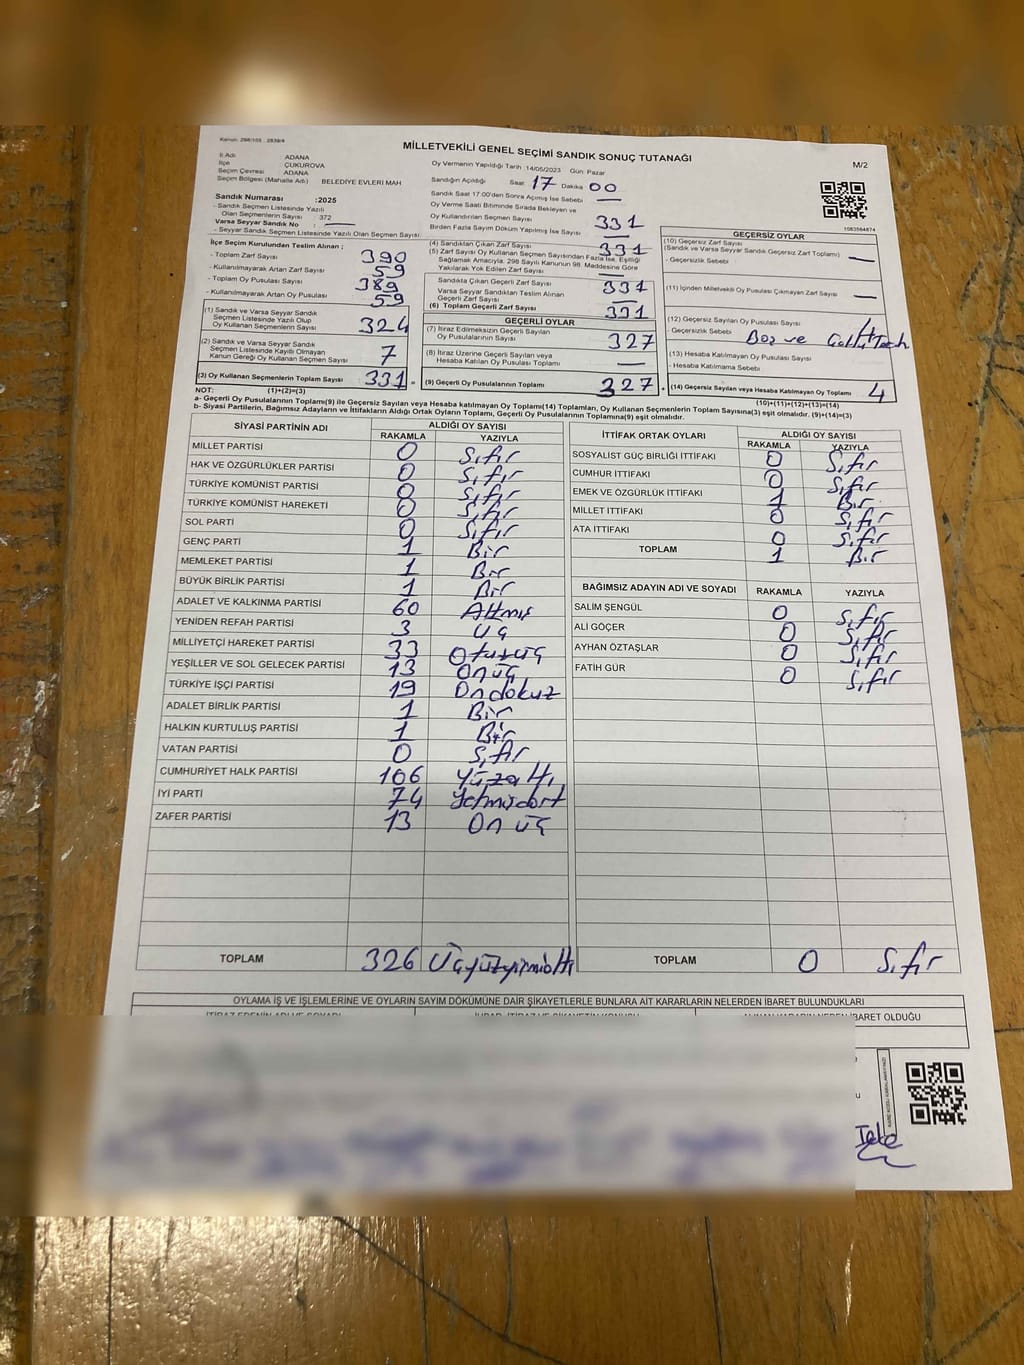 Kanun: 298/105 2839/4
MİLLETVEKİLİ GENEL SEÇİMİ SANDIK SONUÇ TUTANAĞI
M/2
İl Adı ADANA
İlçe ÇUKUROVA
Seçim Çevresi ADANA
Seçim Bölgesi (Mahalle Adı) BELEDİYE EVLERİ MAH
Sandık Numarası :2025
- Sandık Seçmen Listesinde Yazılı
Olan Seçmenlerin Sayısı : 372
Varsa Seyyar Sandık No : —
- Seyyar Sandık Seçmen Listesinde Yazılı Olan Seçmen Sayısı
Oy Vermenin Yapıldığı Tarih :14/05/2023 Gün: Pazar
Sandığın Açıldığı Saat: 17 Dakika 00
Sandık Saat 17:00'den Sonra Açılmış İse Sebebi —
Oy Verme Saati Bitiminde Sırada Bekleyen ve
Oy Kullandırılan Seçmen Sayısı
Birden Fazla Sayım Döküm Yapılmış İse Sayısı 331
1083564874
İlçe Seçim Kurulundan Teslim Alınan ;
- Toplam Zarf Sayısı 390
- Kullanılmayarak Artan Zarf Sayısı 59
- Toplam Oy Pusulası Sayısı 389
- Kullanılmayarak Artan Oy Pusulası 59
(1) Sandık ve Varsa Seyyar Sandık
Seçmen Listesinde Yazılı Olup
Oy Kullanan Seçmenlerin Sayısı 324
(2) Sandık ve Varsa Seyyar Sandık
Seçmen Listesinde Kayıtlı Olmayan
Kanun Gereği Oy Kullanan Seçmen Sayısı 7
(3) Oy Kullanan Seçmenlerin Toplam Sayısı 331 =
(4) Sandıktan Çıkan Zarf Sayısı 331
(5) Zarf Sayısı Oy Kullanan Seçmen Sayısından Fazla İse, Eşitliği
Sağlamak Amacıyla, 298 Sayılı Kanunun 98. Maddesine Göre
Yakılarak Yok Edilen Zarf Sayısı —
Sandıkta Çıkan Geçerli Zarf Sayısı 331
Varsa Seyyar Sandıktan Teslim Alınan
Geçerli Zarf Sayısı —
(6) Toplam Geçerli Zarf Sayısı 331
GEÇERLİ OYLAR
(7) İtiraz Edilmeksizin Geçerli Sayılan
Oy Pusulalarının Sayısı 327
(8) İtiraz Üzerine Geçerli Sayılan veya
Hesaba Katılan Oy Pusulası Toplamı —
(9) Geçerli Oy Pusulalarının Toplamı 327 +
GEÇERSİZ OYLAR
(10) Geçersiz Zarf Sayısı
(Sandık ve Varsa Seyyar Sandık Geçersiz Zarf Toplamı)
- Geçersizlik Sebebi —
(11) İçinden Milletvekili Oy Pusulası Çıkmayan Zarf Sayısı —
(12) Geçersiz Sayılan Oy Pusulası Sayısı 4
- Geçersizlik Sebebi Boş ve
(13) Hesaba Katılmayan Oy Pusulası Sayısı
- Hesaba Katılmama Sebebi
(14) Geçersiz Sayılan veya Hesaba Katılmayan Oy Toplamı 4
NOT: (1)+(2)=(3) (10)+(11)+(12)+(13)=(14)
a- Geçerli Oy Pusulalarının Toplamı(9) ile Geçersiz Sayılan veya Hesaba Katılmayan Oy Toplamı(14) Toplamları, Oy Kullanan Seçmenlerin Toplam Sayısına(3) eşit olmalıdır. (9)+(14)=(3)
b- Siyasi Partilerin, Bağımsız Adayların ve İttifakların Aldığı Ortak Oyların Toplamı, Geçerli Oy Pusulalarının Toplamına(9) eşit olmalıdır.
SİYASİ PARTİNİN ADI ALDIĞI OY SAYISI
RAKAMLA YAZIYLA
MİLLET PARTİSİ 0 Sıfır
HAK VE ÖZGÜRLÜKLER PARTİSİ 0 Sıfır
TÜRKİYE KOMÜNİST PARTİSİ 0 Sıfır
TÜRKİYE KOMÜNİST HAREKETİ 0 Sıfır
SOL PARTİ 0 Sıfır
GENÇ PARTİ 1 Bir
MEMLEKET PARTİSİ 1 Bir
BÜYÜK BİRLİK PARTİSİ 1 Bir
ADALET VE KALKINMA PARTİSİ 60 Altmış
YENİDEN REFAH PARTİSİ 3 Üç
MİLLİYETÇİ HAREKET PARTİSİ 33 Otuzüç
YEŞİLLER VE SOL GELECEK PARTİSİ 13 Onüç
TÜRKİYE İŞÇİ PARTİSİ 19 Ondokuz
ADALET BİRLİK PARTİSİ 1 Bir
HALKIN KURTULUŞ PARTİSİ 1 Bir
VATAN PARTİSİ 0 Sıfır
CUMHURİYET HALK PARTİSİ 106 Yüzaltı
İYİ PARTİ 74 Yetmişdört
ZAFER PARTİSİ 13 On üç
TOPLAM 326 Üçyüzyirmialtı
İTTİFAK ORTAK OYLARI ALDIĞI OY SAYISI
RAKAMLA YAZIYLA
SOSYALİST GÜÇ BİRLİĞİ İTTİFAKI 0 Sıfır
CUMHUR İTTİFAKI 0 Sıfır
EMEK VE ÖZGÜRLÜK İTTİFAKI 1 Bir
MİLLET İTTİFAKI 0 Sıfır
ATA İTTİFAKI 0 Sıfır
TOPLAM 1 Bir
BAĞIMSIZ ADAYIN ADI VE SOYADI RAKAMLA YAZIYLA
SALİM ŞENGÜL 0 Sıfır
ALİ GÖÇER 0 Sıfır
AYHAN ÖZTAŞLAR 0 Sıfır
FATİH GÜR 0 Sıfır
TOPLAM 0 Sıfır
OYLAMA İŞ VE İŞLEMLERİNE VE OYLARIN SAYIM DÖKÜMÜNE DAİR ŞİKAYETLERLE BUNLARA AİT KARARLARIN NELERDEN İBARET BULUNDUKLARI
İTİRAZ EDENİN ADI VE SOYADI İHBAR, İTİRAZ VE ŞİKAYETİN KONUSU ALINAN KARARIN NEDEN İBARET OLDUĞU